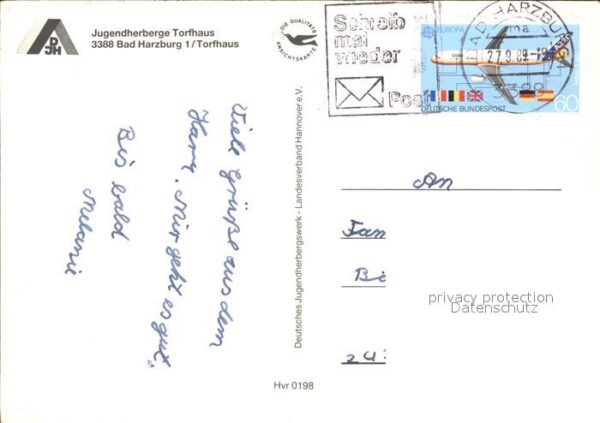 DJH
Jugendherberge Torfhaus
3388 Bad Harzburg 1/Torfhaus
DIE QUALITÄTS
ANSICHTSKARTE
Schreib
mal
wieder
Post
BAD HARZBURG
ma
27.9.89
3388
EUROPA
60
DEUTSCHE BUNDESPOST
Viele Grüße aus dem
Harz. Mir geht es gut.
Bis bald
Melanie
Deutsches Jugendherbergswerk - Landesverband Hannover e.V.
An
Fam
Be
privacy protection
Datenschutz
243
Hvr 0198